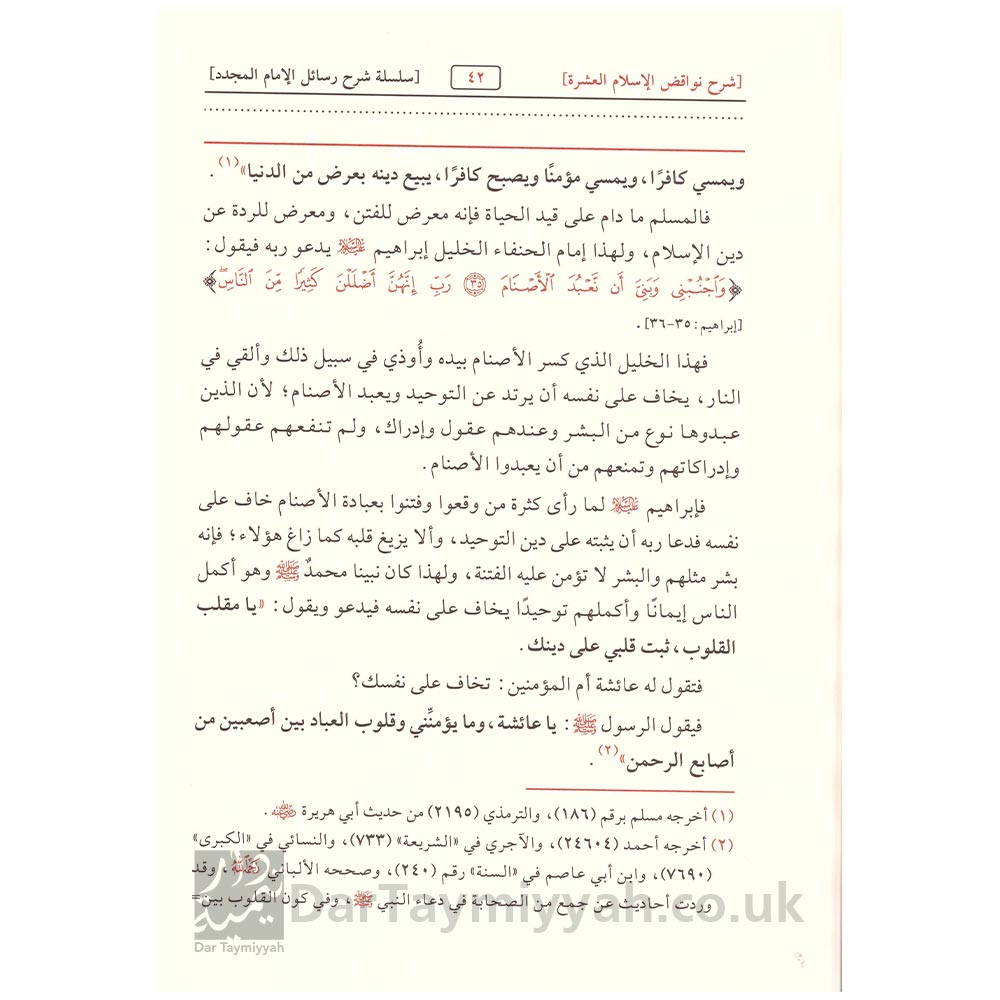 [شرح نواقض الإسلام العشرة] ٤٢ [سلسلة شرح رسائل الإمام المجدد]
ويمسي كافرًا، ويمسي مؤمنًا ويصبح كافرًا، يبيع دينه بعرض من الدنيا»(١).
فالمسلم ما دام على قيد الحياة فإنه معرض للفتن، ومعرض للردة عن
دين الإسلام، ولهذا إمام الحنفاء الخليل إبراهيم عليه السلام يدعو ربه فيقول:
﴿وَٱجۡنُبۡنِي وَبَنِيَّ أَن نَّعۡبُدَ ٱلۡأَصۡنَامَ ٣٥ رَبِّ إِنَّهُنَّ أَضۡلَلۡنَ كَثِيرٗا مِّنَ ٱلنَّاسِۖ﴾
[إبراهيم: ٣٥-٣٦].
فهذا الخليل الذي كسر الأصنام بيده وأُوذي في سبيل ذلك وألقي في
النار، يخاف على نفسه أن يرتد عن التوحيد ويعبد الأصنام؛ لأن الذين
عبدوها نوع من البشر وعندهم عقول وإدراك، ولم تنفعهم عقولهم
وإدراكاتهم وتمنعهم من أن يعبدوا الأصنام.
فإبراهيم عليه السلام لما رأى كثرة من وقعوا وفتنوا بعبادة الأصنام خاف على
نفسه فدعا ربه أن يثبته على دين التوحيد، وألا يزيغ قلبه كما زاغ هؤلاء؛ فإنه
بشر مثلهم والبشر لا تؤمن عليه الفتنة، ولهذا كان نبينا محمدٌ ﷺ وهو أكمل
الناس إيمانًا وأكملهم توحيدًا يخاف على نفسه فيدعو ويقول: «يا مقلب
القلوب، ثبت قلبي على دينك.
فتقول له عائشة أم المؤمنين: تخاف على نفسك؟
فيقول الرسول ﷺ: يا عائشة، وما يؤمنِّني وقلوب العباد بين أصعبين من
أصابع الرحمن»(٢).
(١) أخرجه مسلم برقم (١٨٦)، والترمذي (٢١٩٥) من حديث أبي هريرة رضي الله عنه.
(٢) أخرجه أحمد (٢٤٦٠٤)، والآجري في «الشريعة» (٧٣٣)، والنسائي في «الكبرى»
(٧٦٩٠)، وابن أبي عاصم في «السنة» رقم (٢٤٠)، وصححه الألباني رحمه الله، وقد
وردت أحاديث عن جمع من الصحابة في دعاء النبي ﷺ، وفي كون القلوب بين=
DarTaymiyyah.co.uk
Dar Taymiyyah